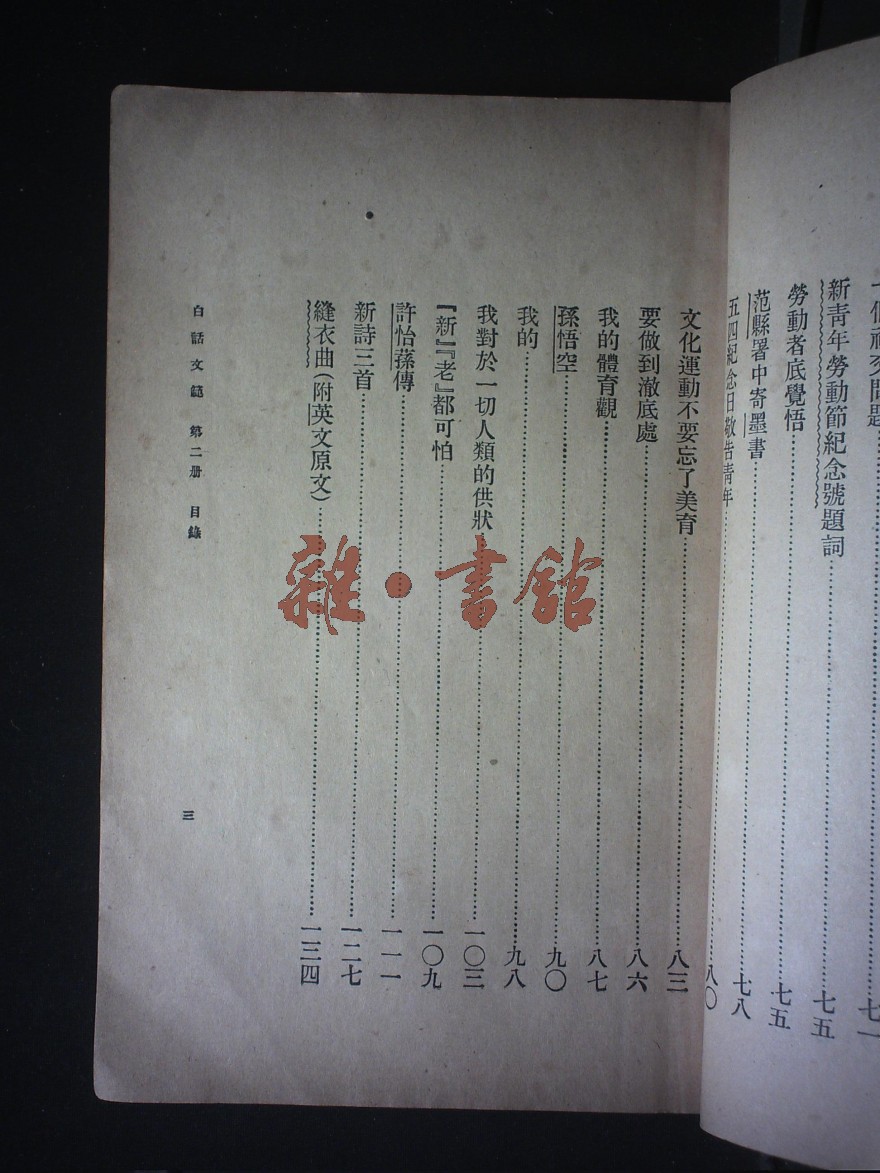 個社交問題……七一
新靑年勞動節紀念號題詞……七五
勞動者底覺悟……七五
范縣署中寄墨書……七八
五四紀念日敬告靑年……八〇
文化運動不要忘了美育……八三
要做到澈底處……八六
我的體育觀……八七
孫悟空……九〇
我的……九八
我對於一切人類的供狀……一〇三
『新』『老』都可怕……一〇九
許怡蓀傳……一一一
新詩三首……一二七
縫衣曲(附英文原文)……一三四
白話文範 第二册 目錄
三
雜·書館